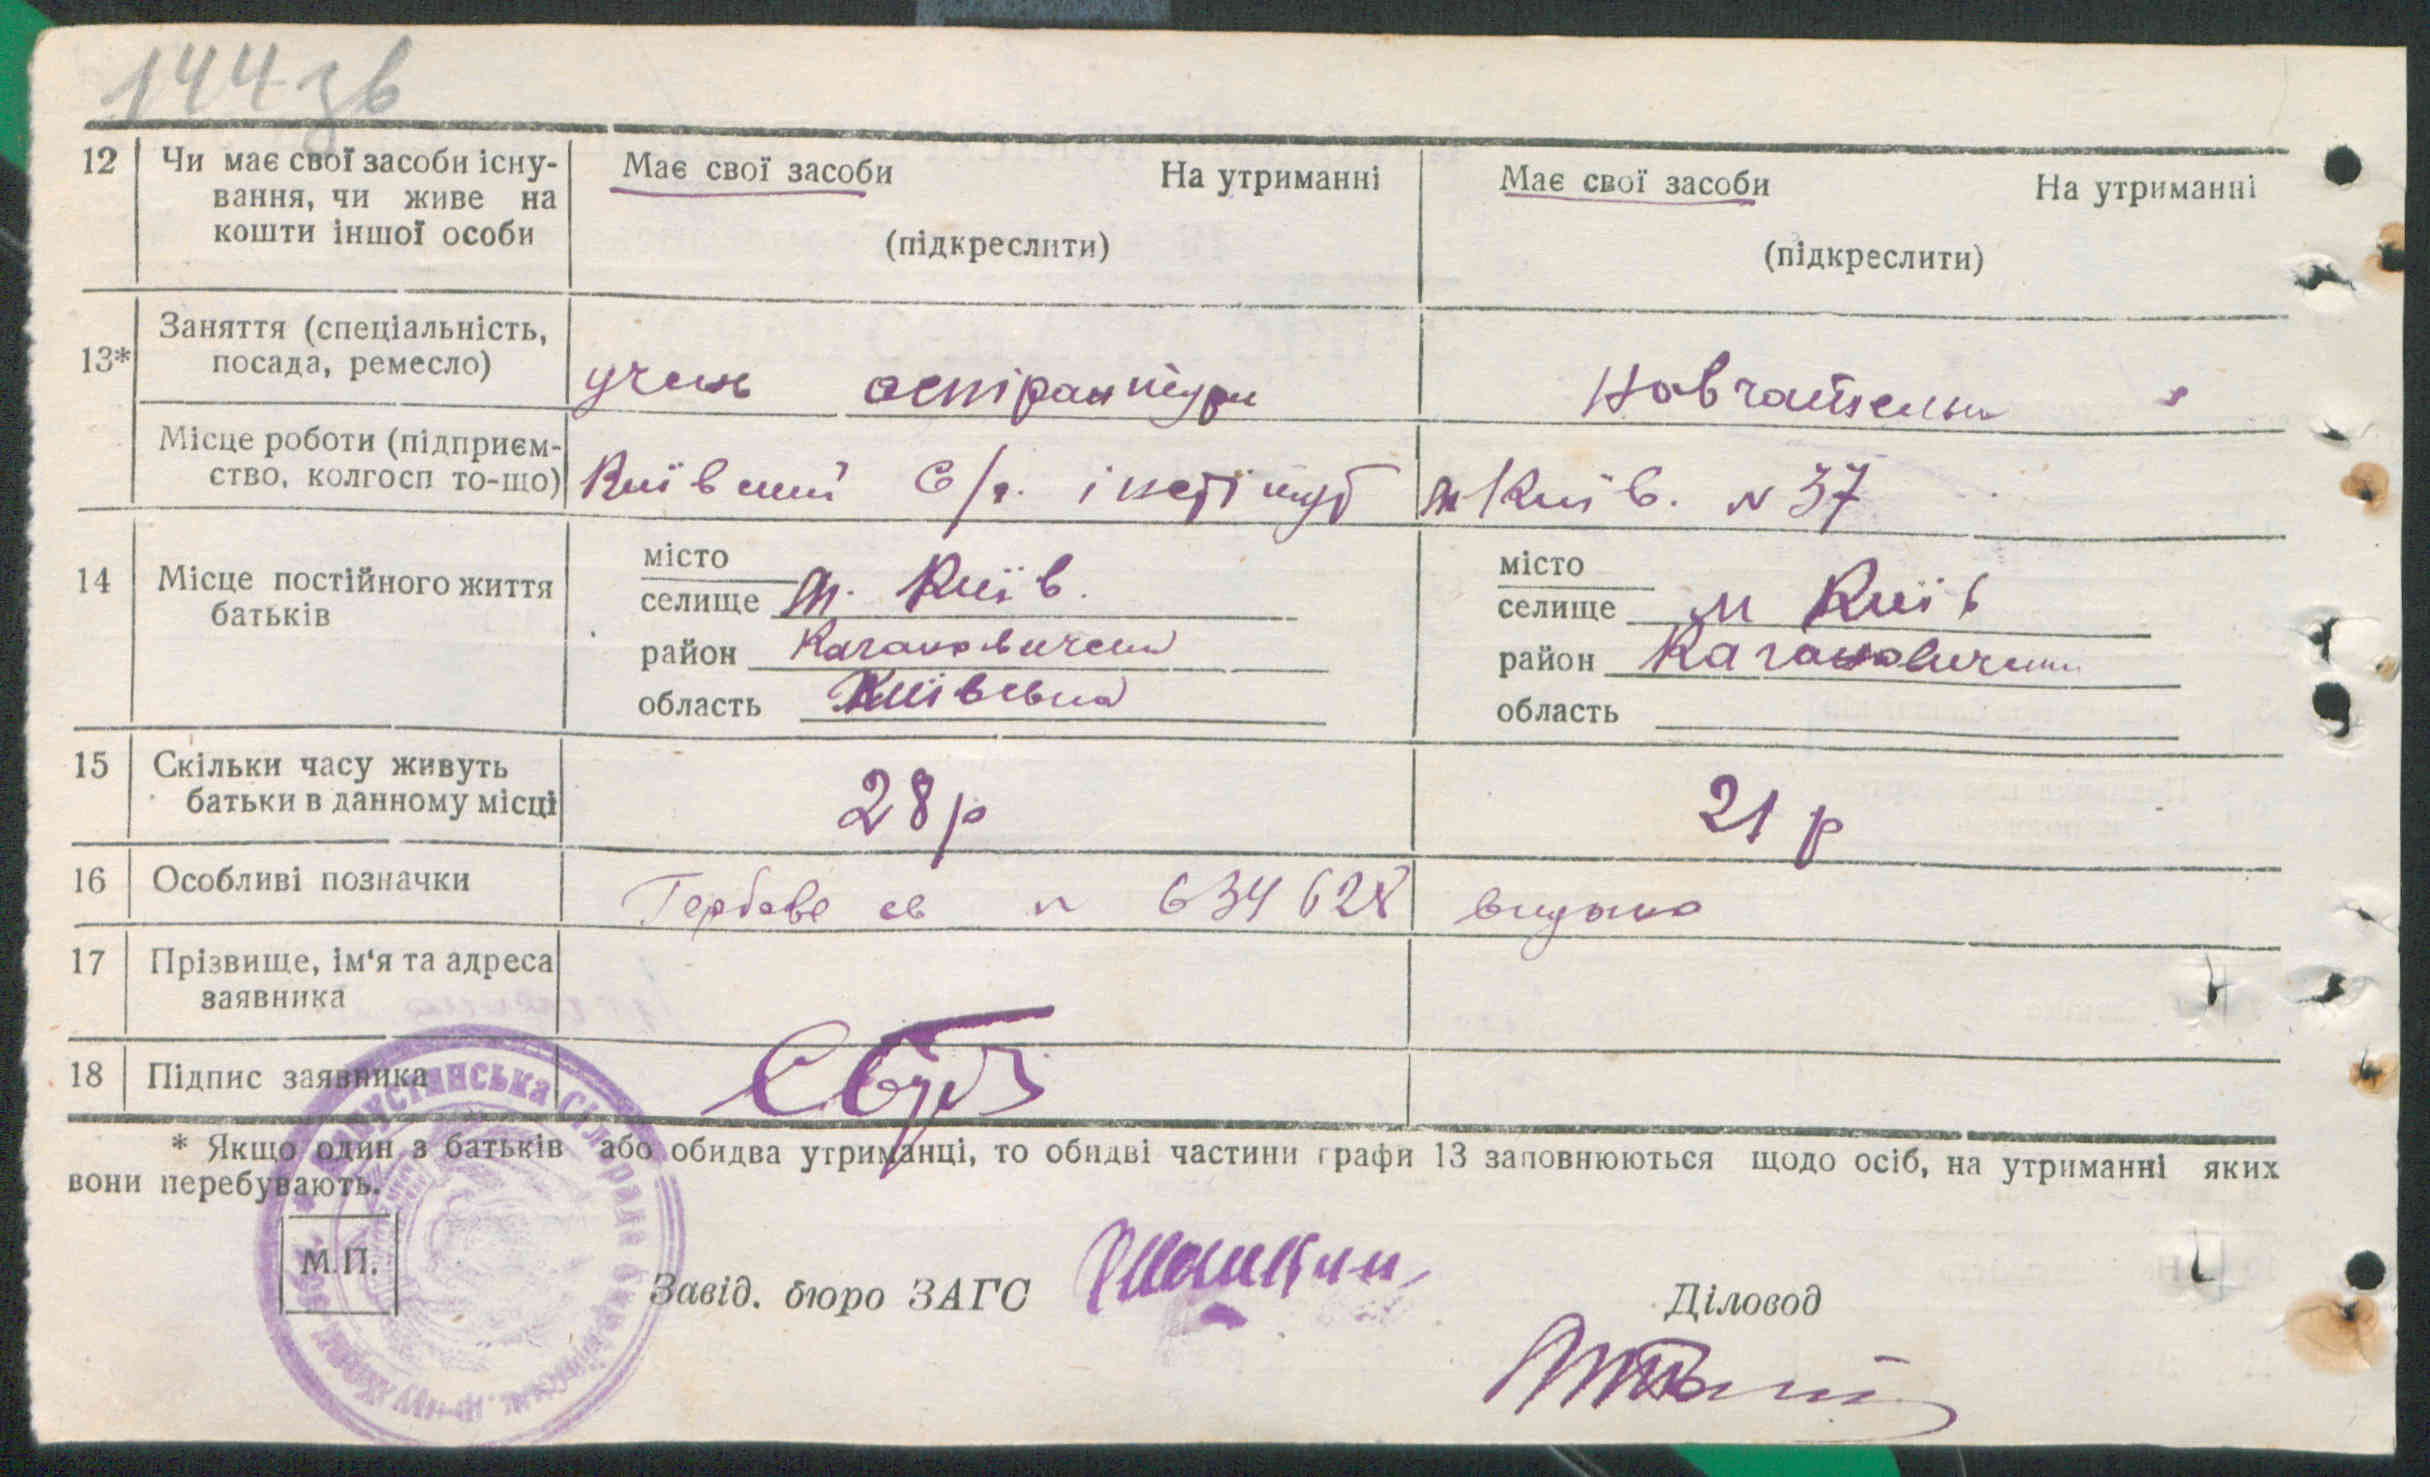 144 зв
12 Чи має свої засоби існу- Має свої засоби На утриманні Має свої засоби На утриманні
вання, чи живе на
кошти іншої особи (підкреслити) (підкреслити)
13* Заняття (спеціальність,
посада, ремесло) учень аспірантури
Місце роботи (підприєм-
ство, колгосп то-що) Київський С/г. інстітут м Київ. N 37
14 Місце постійного життя
батьків
місто
селище м. Київ.
район
область Київська
місто
селище м Київ
район
область
15 Скільки часу живуть
батьки в данному місці 28 р 21 р
16 Особливі позначки Гербове св n 634628 видано
17 Прізвище, ім'я та адреса
заявника
18 Підпис заявника
* Якщо один з батьків або обидва утриманці, то обидві частини графи 13 заповнюються щодо осіб, на утриманні яких
вони перебувають.
М.П.
Завід. бюро ЗАГС Діловод